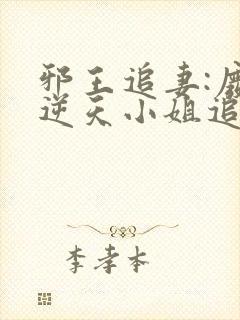 邪王追妻:
逆天小姐追
李孝本